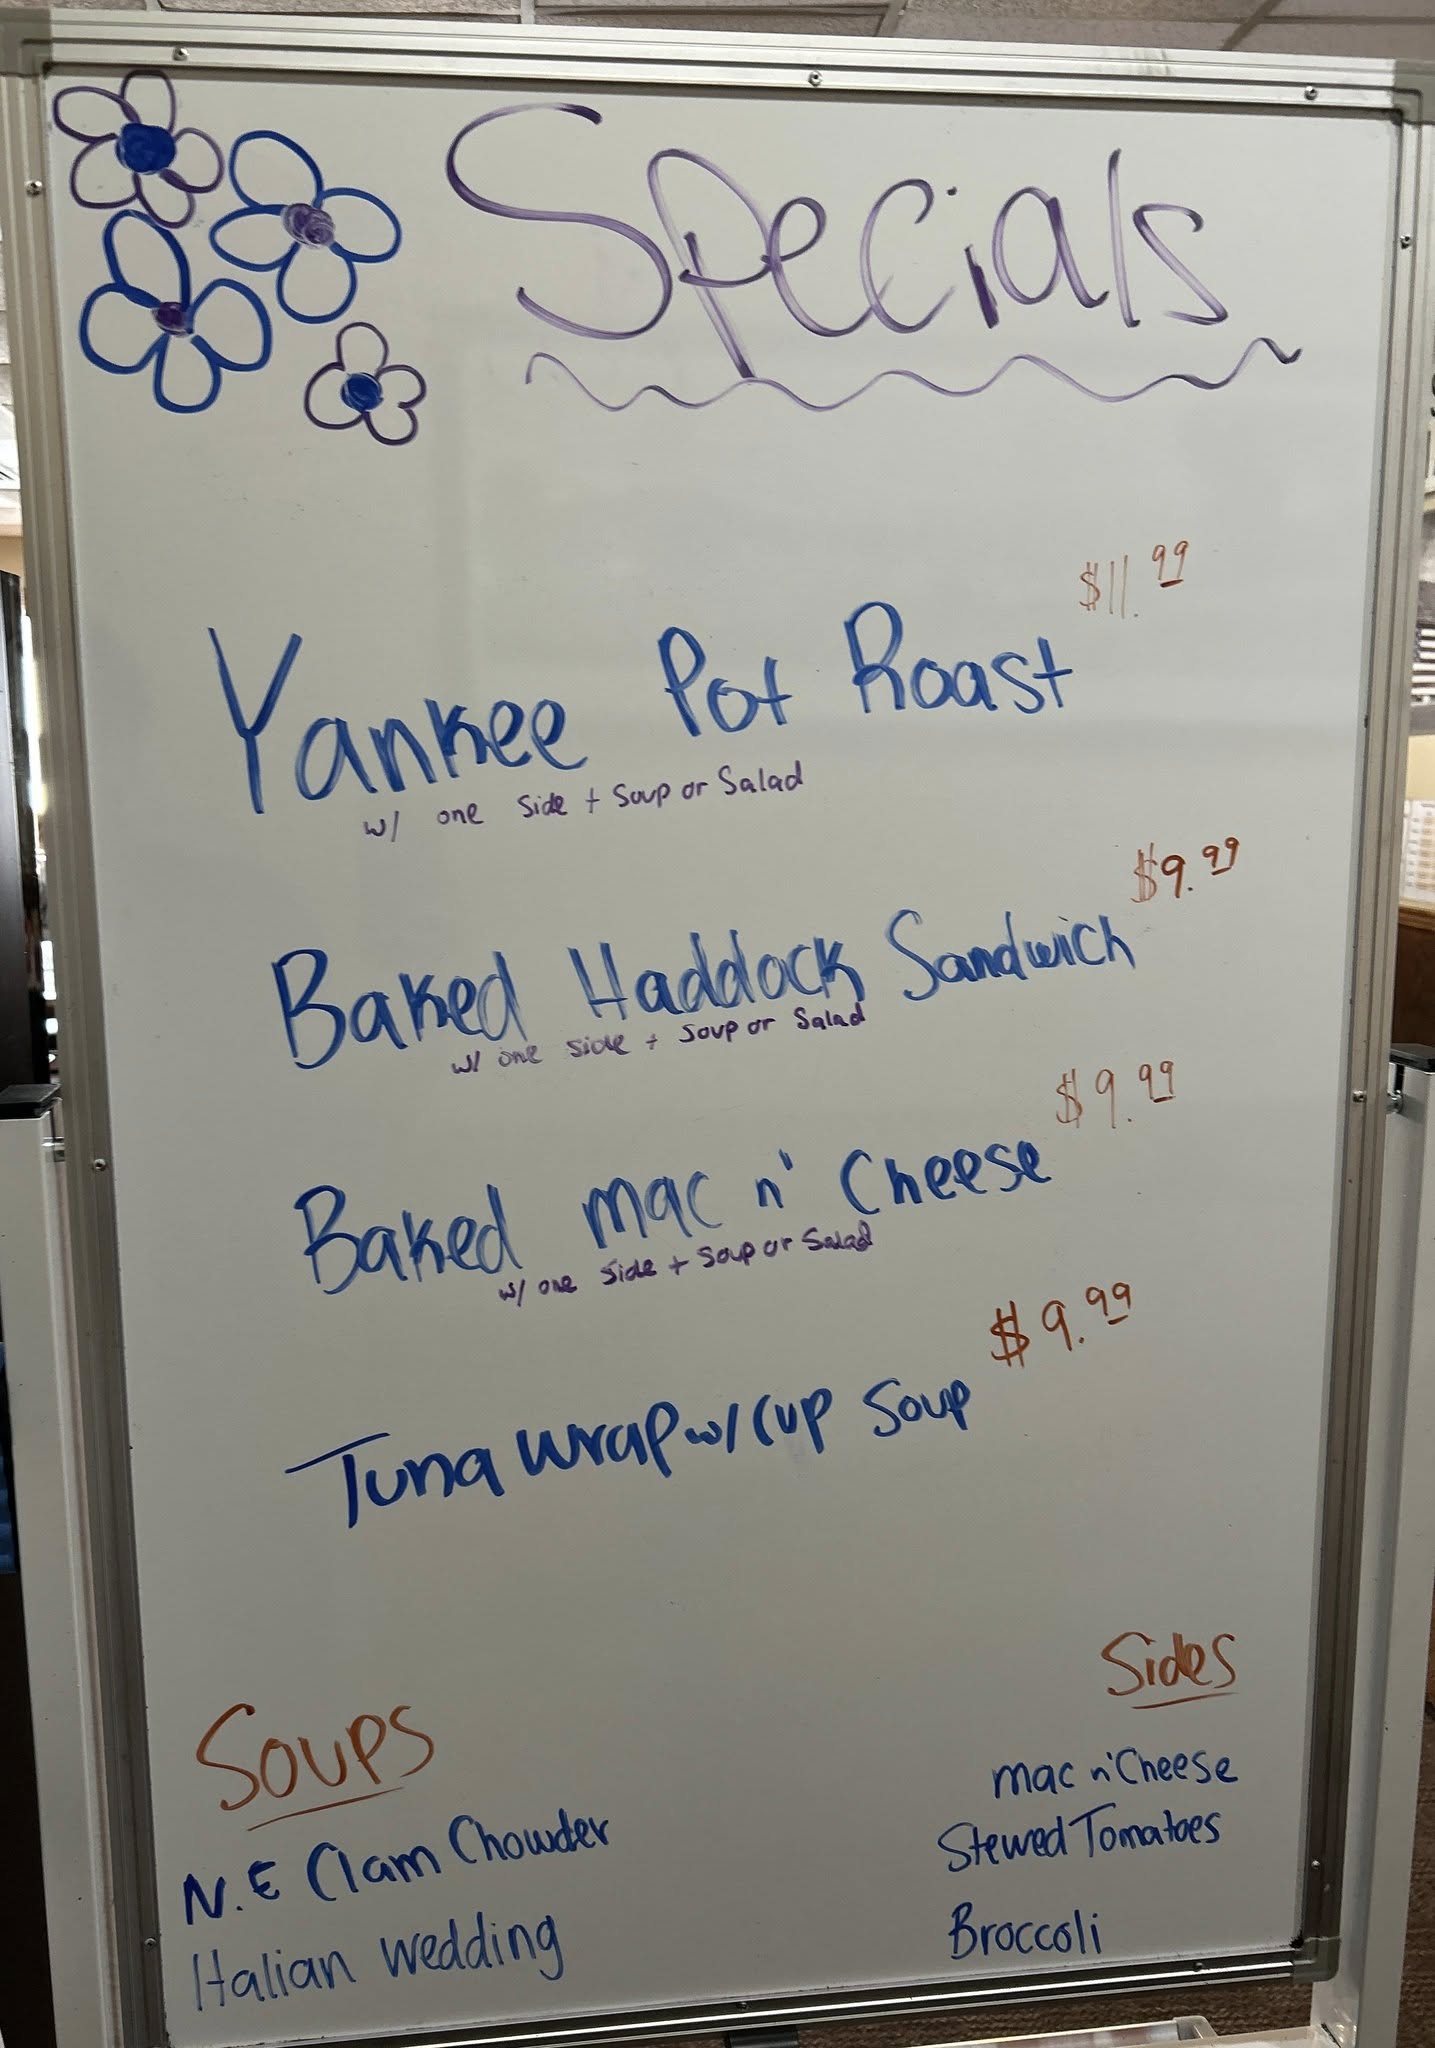 Specials
$11.99
Yankee Pot Roast
w/ one Side + Soup or Salad
$9.99
Baked Haddock Sandwich
w/ one side + soup or Salad
$9.99
Baked Mac n' Cheese
w/ one side + Soup or Salad
$9.99
Tuna Wrap w/ Cup Soup
Soups
N.E Clam Chowder
Italian Wedding
Sides
Mac n' Cheese
Stewed Tomatoes
Broccoli